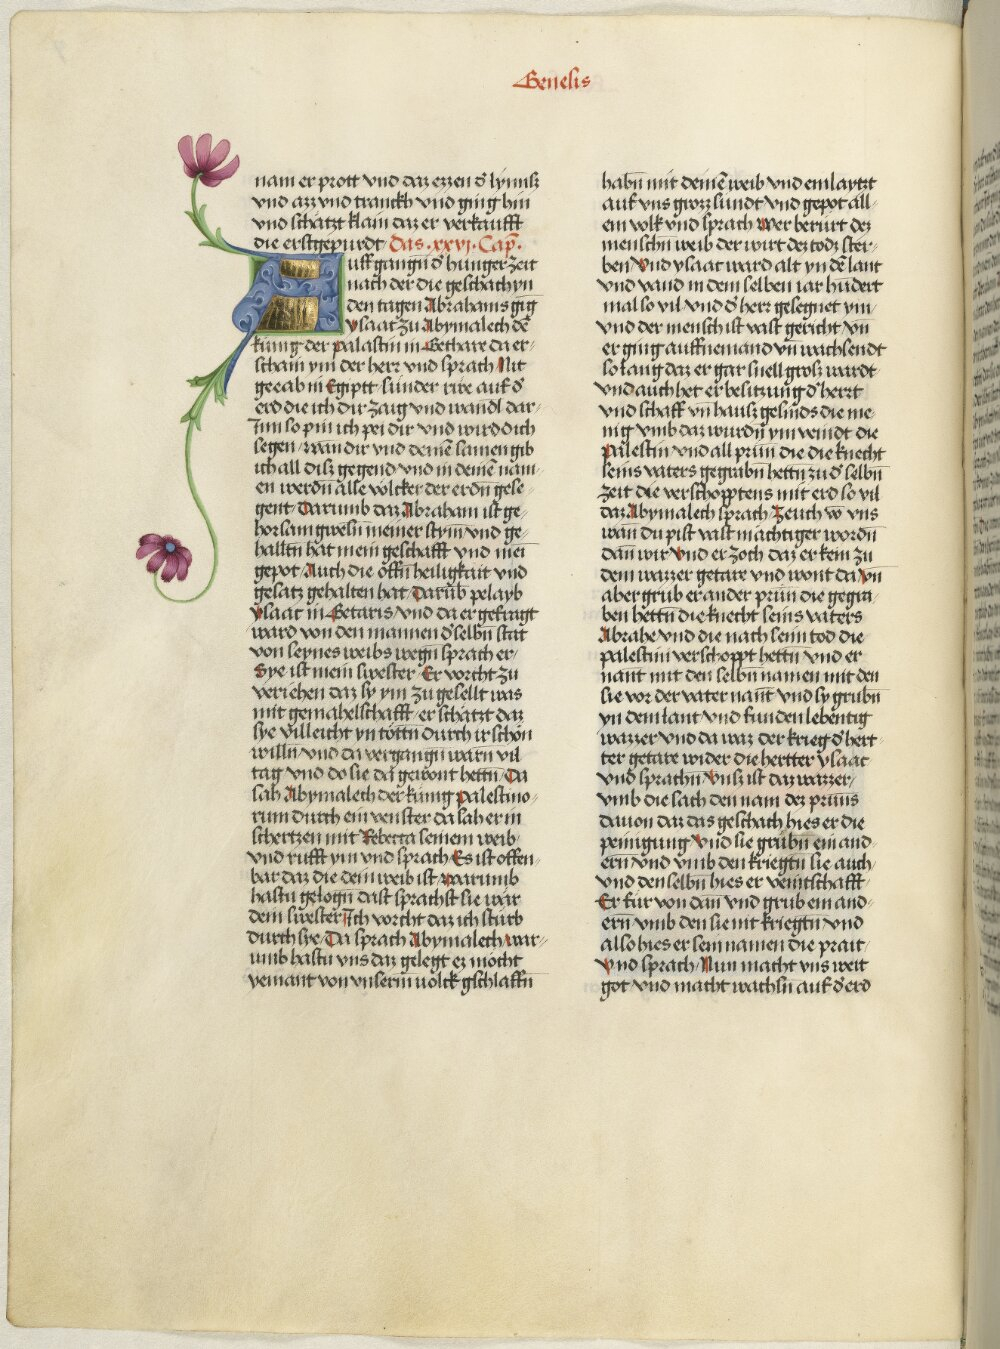 Genesis
nam er prott vnd daz ezzen d͛ lynnsz
vnd azz vnd tranckh vnd ging hin
vnd schätzt klain daz er verkaufft
die erstgepurdt Das .xxvj. Cap̄.
Auff gangn̄ d͛ hungerzeit
nach der die geschach yn
den tagen Abrahams gīg
ysaac zu Abymalech dē
künig der palastin in Gethare da er-
schain ym der herr vnd sprach Nit
gee ab in Egiptt / sunder rwe auf d͛
erd die ich dir zaig vnd wandl dar-
Inn so pin ich pei dir vnd wird dich
segen / wan dir vnd deinē samen gib
ich all disz gegend vnd in deinē nam-
en werdn̄ alle völcker der erdn̄ gese-
gent Darumb daz Abraham ist ge-
horsam gwesn̄ meiner stym vnd ge-
halltn̄ hat mein geschäfft vnd mei
gepot / Auch die öffn̄ heiligkait vnd
gesatz gehalten hat / Darūb pelayb
ysaac in Getaris / vnd da er gefragt
ward von den mannen d͛ selbn̄ stat
von seynes weibs wegn̄ sprach er /
Sye ist mein swester / Er vorcht zu
veriehen daz sy ym zu gesellt was
mit gemahelschafft / er schätzt daz
sye villeicht yn töttn̄ durch ir schön
willn̄ / vnd da vergangn̄ warn vil
tag vnd do sie da gewont hettn̄ / Da
sah Abymalech der künig palestino-
rum durch ein venster da sah er in
schertzen mit Rebecca seinem weib
vnd rufft ym vnd sprach / Es ist offen-
bar daz die dein weib ist / warumb
hastu gelogn̄ dast sprachst sie wär
dein swester / Ich vorcht daz ich stürb
durch sye / Da sprach Abymalech / war-
umb hastu vns daz gelegt ez möcht
yemant von vnserm volck gschlaffn̄
habn̄ mit deinē weib vnd einlaytzt
auf vns grozz sundt vnd gepot all-
em volk vnd sprach Wer berürt dez
menschn̄ weib der wirt dez todz ster-
ben / Vnd ysaac ward alt yn dē lant
vnd vand in dem selben iar hūdert
mal so vil / vnd d͛ herr gesegnet ym /
vnd der mensch ist vast gericht / vn̄
er ging auffnemand vn̄ wachsendt
so lang daz er gar snell grosz wardt
vnd auch het er besitzung d͛ herrt
vnd schaff vn̄ hausz gesinds die me-
nig vmb daz wurdn̄ ym veindt die
palestin vnd all prün̄ die die knecht
seins vaters gegrabn̄ hettn̄ zu d͛ selbn̄
zeit die verschopptens mit erd so vil
daz Abymalech sprach Zeuch vō vns
wan du pist vast mächtiger wordn̄
dan̄ wir / Vnd er zoch daz er kem zu
dem wazzer getare vnd wont da Vn̄
aber grüb er ander prün̄ die gegra-
ben hettn̄ die knecht seins vaters
Abrahe vnd die nach seim tod die
palestin verschoppt hettn̄ vnd er
nant mit den selbn̄ namen mit den
sie vor der vater nan̄t vnd sy grubn̄
yn dem lant vnd funden lebentig
wazzer vnd da waz der krieg d͛ hert-
ter getare wider die hertter ysaac
vnd sprachn̄ Vnsz ist daz wazzer /
vmb die sach den nam dez prüns
dauon daz das geschach hies er die
peinigung / Vnd sie grubn̄ ein and-
ern vnd vmb den kriegtn̄ sie auch
vnd den selbn̄ hies er veintschafft
Er für von dan̄ vnd grub ein and-
ern vmb den sie nit kriegtn̄ vnd
also hies er sein namen die prait
Vnd sprach / Nun macht vns weit
got vnd macht wachsn̄ auf d͛ erd